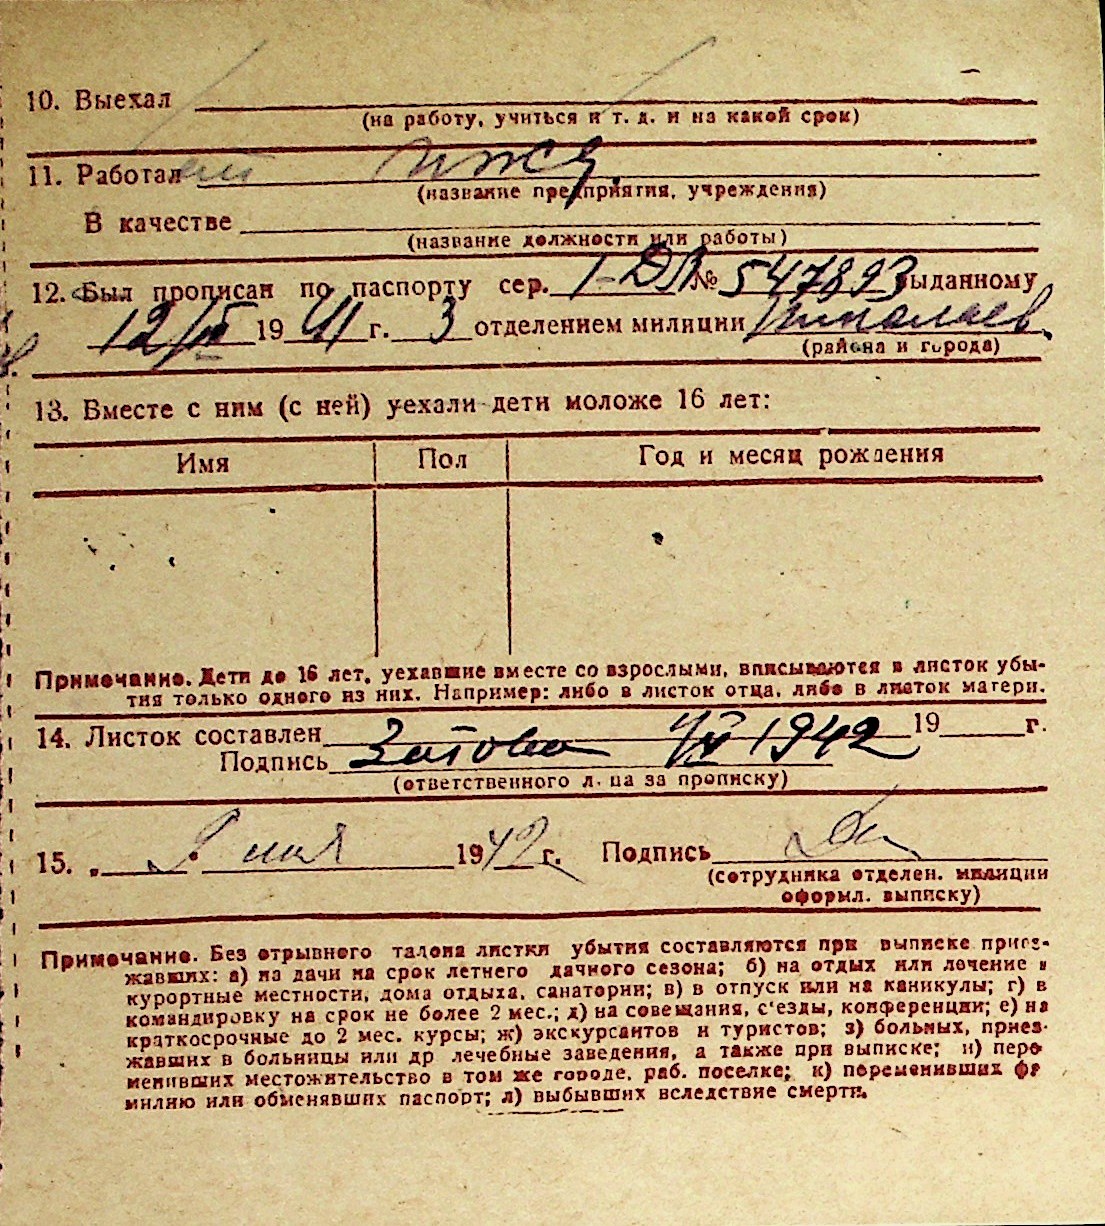 10. Выехал
(на работу, учиться и т. д. и на какой срок)
11. Работал ижд.
(название предприятия, учреждения)
В качестве
(название должности или работы)
12. Был прописан по паспорту сер. I-ДЛ № 547893 выданному
12/ 19 41 г. 3 отделением милиции Николаев
(района и города)
13. Вместе с ним (с ней) уехали дети моложе 16 лет:
Имя Пол Год и месяц рождения
Примечание. Дети до 16 лет, уехавшие вместе со взрослыми, вписываются в листок убы-
тия только одного из них. Например: либо в листок отца, либо в листок матери.
14. Листок составлен 1942 19 г.
Подпись
(ответственного лица за прописку)
15. „ 1942 г. Подпись
(сотрудника отделен. милиции
оформл. выписку)
Примечание. Без отрывного талона листки убытия составляются при выписке приез-
жавших: а) на дачи на срок летнего дачного сезона; б) на отдых или лечение в
курортные местности, дома отдыха, санатории; в) в отпуск или на каникулы; г) в
командировку на срок не более 2 мес.; д) на совещания, с'езды, конференции; е) на
краткосрочные до 2 мес. курсы; ж) экскурсантов и туристов; з) больных, приез-
жавших в больницы или др лечебные заведения, а также при выписке; и) пере
менивших местожительство в том же городе, раб. поселке; к) переменивших фа
милию или обменявших паспорт; л) выбывших вследствие смерти.